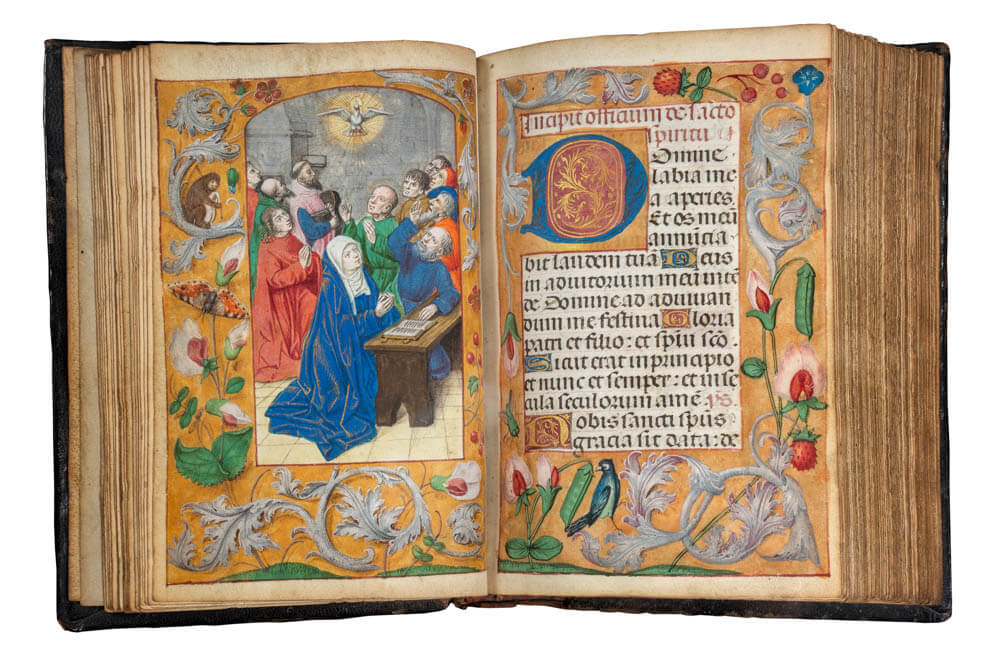 Incipit officium de sancto
spiritu
Domine
labia me
a aperies
Et os meū
annūcia
bit laudem tuā Deus
in adiutorium meū intē
de Domine ad adiuuan
dum me festina Gloria
patri et filio: et spiui scō.
Sicut erat in principio
et nunc et semper: et in se
cula seculorum amē ps
Nobis sancti spūs
gracia sit data: de